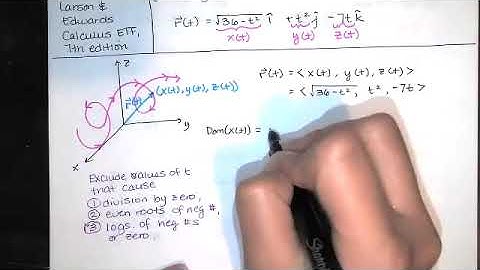 Larson &
Edwards
Calculus ETF,
7th edition
r⃗(t) = √36-t² î + t² ĵ - 7t k̂
x(t) y(t) z(t)
z
(x(t), y(t), z(t))
r⃗(t)
y
x
r⃗(t) = < x(t), y(t), z(t) >
= < √36-t², t², -7t >
Dom(x(t)) =
Exclude values of t
that cause
① division by zero,
② even roots of neg #,
③ logs of neg #s
or zero,
Sharpie